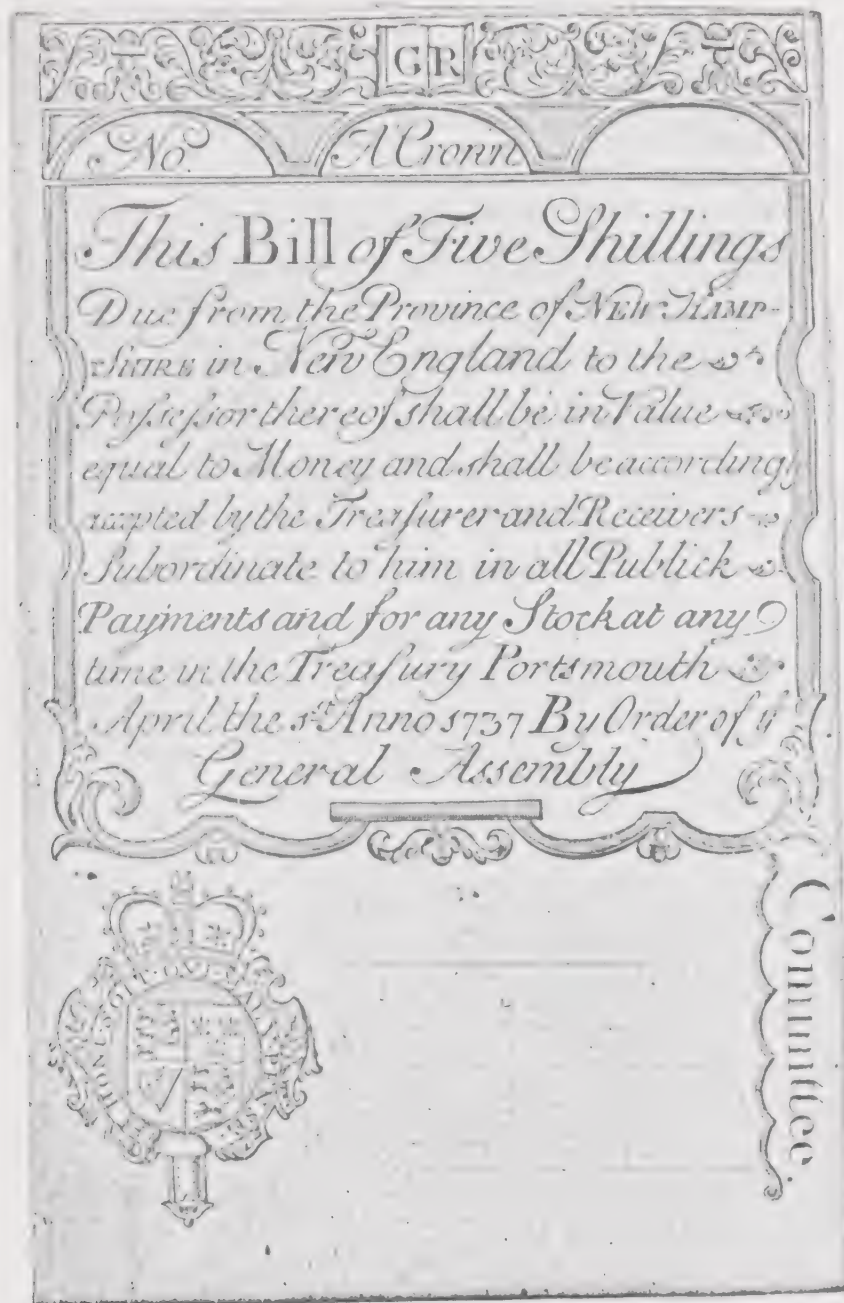 GR
No. A Crown
This Bill of Five Shillings
Due from the Province of NEW HAMP-
SHIRE in New England to the
Poſseſsor thereof shall be in Value
equal to Money and shall be accordingly
accepted by the Treaſurer and Receivers
Subordinate to him in all Publick
Payments and for any Stock at any
time in the Treaſury Portsmouth
April the 1st Anno 1737 By Order of ye
General Assembly
Committee.
HONI SOIT QUI MAL Y PENSE